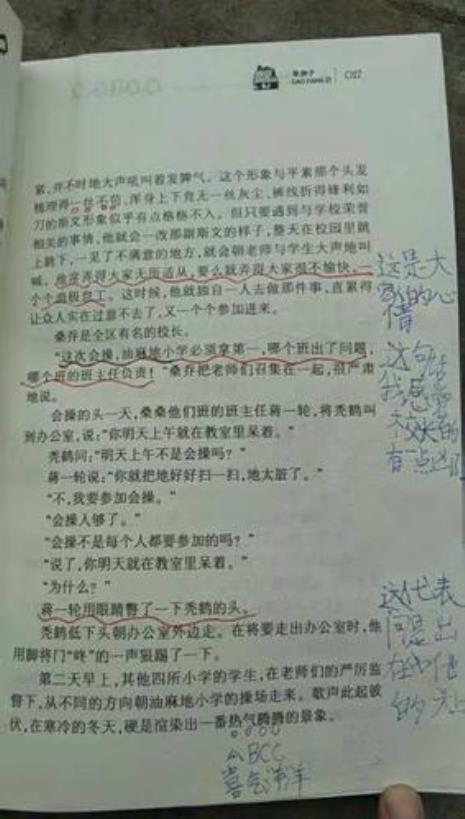 草房子
CAO FANG ZI
紧,并不时地大声吼叫着发脾气。这个形象与平素那个头发
梳理得一丝不苟、浑身上下竟无一丝灰尘、裤线折得锋利如
刀的斯文形象似乎有点格格不入。但只要遇到与学校荣誉
相关的事情,他就会一改那副斯文的样子,整天在校园里跳
上跳下,一见了不满意的地方,就会朝老师与学生大声地叫
喊。他常弄得大家无所适从,要么就弄得大家很不愉快,一
个个消极怠工。这时候,他就独自一人去做那件事,直累得
让众人实在过意不去了,又一个个参加进来。
桑乔是全区有名的校长。
“这次会操,油麻地小学必须拿第一,哪个班出了问题,
哪个班的班主任负责!”桑乔把老师们召集在一起,很严肃
地说。
会操的头一天,桑桑他们班的班主任蒋一轮,将秃鹤叫
到办公室,说:“你明天上午就在教室里呆着。”
秃鹤问:“明天上午不是会操吗?”
蒋一轮说:“你就把地好好扫一扫,地太脏了。”
“不,我要参加会操。”
“会操人够了。”
“会操不是每个人都要参加的吗?”
“说了,你明天就在教室里呆着。”
“为什么?”
蒋一轮用眼睛瞥了一下秃鹤的头。
秃鹤低下头朝办公室外边走。在将要走出办公室时,他
用脚将门“咚”的一声狠踢了一下。
第二天早上,其他四所小学的学生,在老师们的严厉监
督下,从不同的方向朝油麻地小学的操场走来。歌声此起彼
伏,在寒冷的冬天,硬是渲染出一番热气腾腾的景象。
这是大
家的心
情
这句话
我感觉
有一点凶
这代表
问题出
在他
的头上
BCC
喜气洋洋